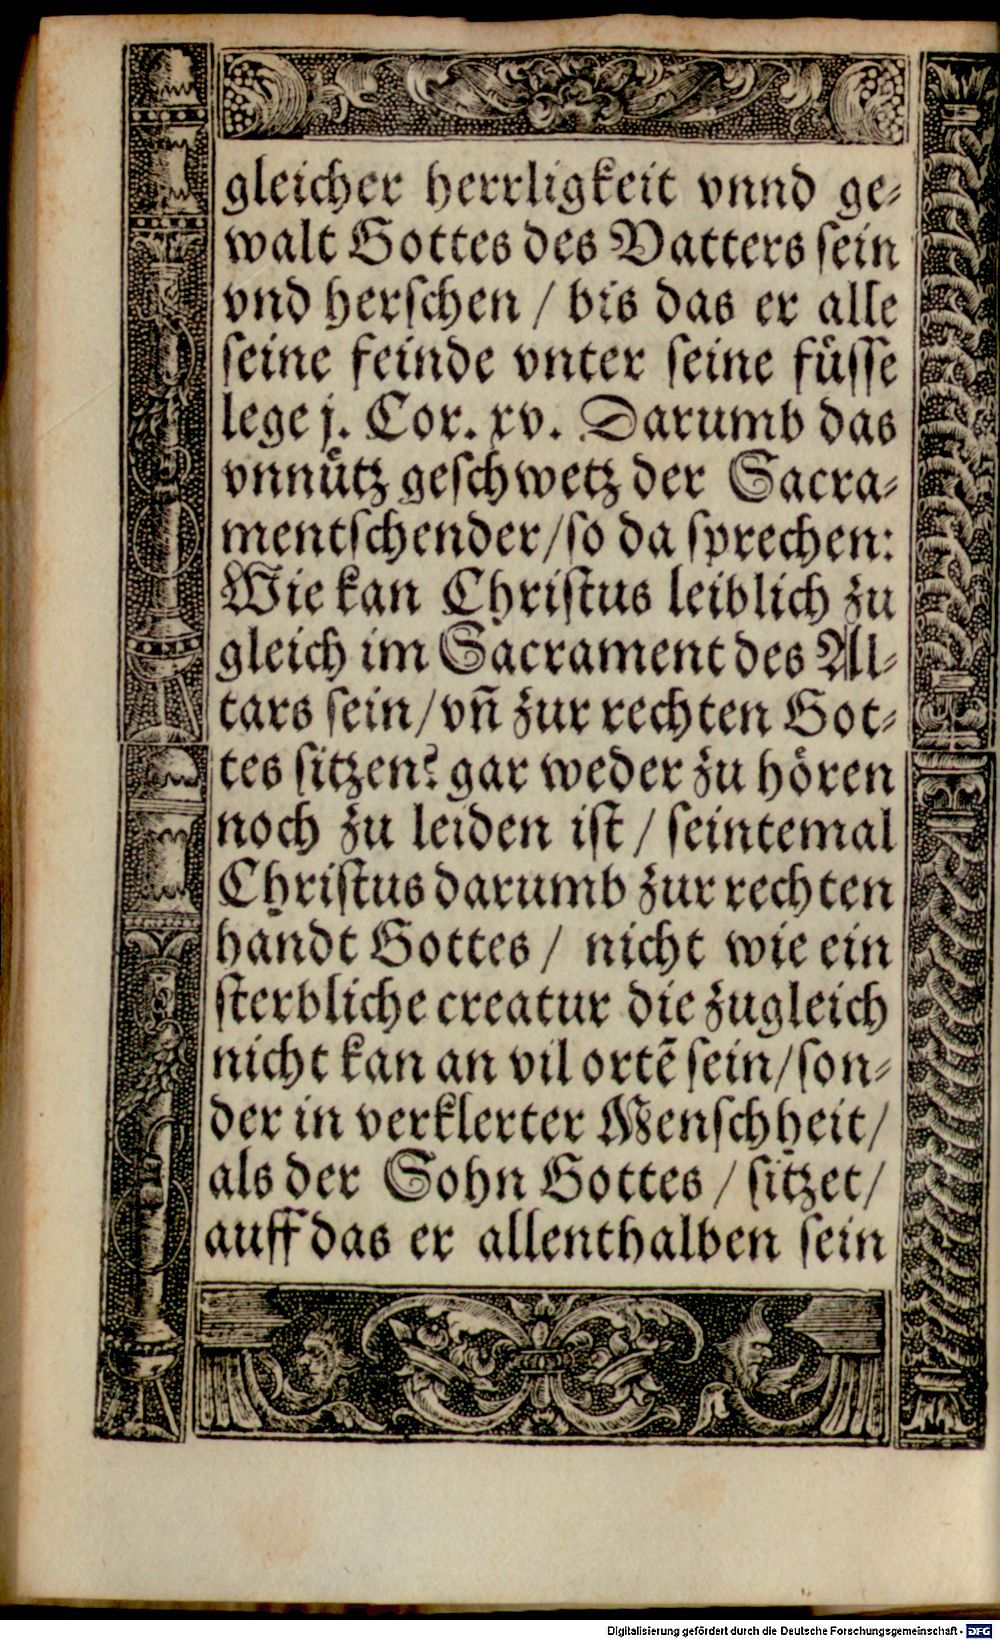 gleicher herrligkeit vnnd ge⸗
walt Gottes des Vatters sein
vnd herschen / bis das er alle
seine feinde vnter seine füsse
lege j. Cor. xv. Darumb das
vnnütz geschwetz der Sacra⸗
mentschender/so da sprechen:
Wie kan Christus leiblich zu
gleich im Sacrament des Al⸗
tars sein/vñ zur rechten Got⸗
tes sitzen? gar weder zu hören
noch zu leiden ist / seintemal
Christus darumb zur rechten
handt Gottes / nicht wie ein
sterbliche creatur die zugleich
nicht kan an vil ortẽ sein/son⸗
der in verklerter Menschheit/
als der Sohn Gottes / sitzet/
auff das er allenthalben sein
Digitalisierung gefördert durch die Deutsche Forschungsgemeinschaft - DFG